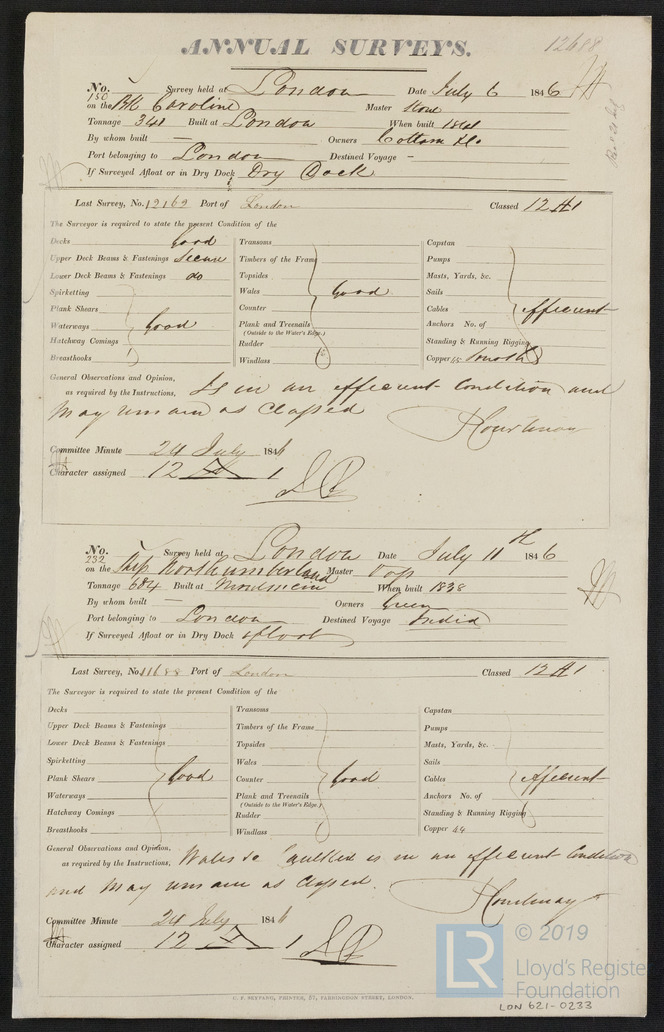 ANNUAL SURVEYS. 12688
No. 150 Survey held at London Date July 6 1846
on the Bk Caroline Master
Tonnage 341 Built at London When built 1841
By whom built — Owners Cottam &Co
Port belonging to London Destined Voyage –
If Surveyed Afloat or in Dry Dock Dry Dock
Last Survey, No. 12162 Port of London Classed 12 A 1
The Surveyor is required to state the present Condition of the
Decks Good Transoms Capstan
Upper Deck Beams & Fastenings Secure Timbers of the Frame Pumps
Lower Deck Beams & Fastenings do Topsides Masts, Yards, &c.
Spirketting Wales Good Sails
Plank Shears Counter Cables efficient
Waterways Good Plank and Treenails Anchors No. of
(Outside to the Water's Edge.)
Hatchway Comings Rudder Standing & Running Rigging
Breasthooks Windlass Copper 45
General Observations and Opinion, Is in an efficient Condition and
as required by the Instructions,
may remain as Classed
Courtenay
Committee Minute 24 July 1846
Character assigned 12 A 1
No. 232 Survey held at London Date July 11th 1846
on the Ship Northumberland Master
Tonnage 684 Built at Moulmein When built 1838
By whom built — Owners Green
Port belonging to London Destined Voyage India
If Surveyed Afloat or in Dry Dock afloat
Last Survey, No. 11688 Port of London Classed 12 A 1
The Surveyor is required to state the present Condition of the
Decks Transoms Capstan
Upper Deck Beams & Fastenings Timbers of the Frame Pumps
Lower Deck Beams & Fastenings Topsides Masts, Yards, &c.
Spirketting Wales Sails
Plank Shears Good Counter Good Cables efficient
Waterways Plank and Treenails Anchors No. of
(Outside to the Water's Edge.)
Hatchway Comings Rudder Standing & Running Rigging
Breasthooks Windlass Copper 44
General Observations and Opinion, Wales &c Caulked is in an efficient Condition
as required by the Instructions,
and may remain as Classed.
Courtenay
Committee Minute 24 July 1846
Character assigned 12 A 1
C. F. SEYFANG, PRINTER, 57, FARRINGDON STREET, LONDON.
LR © 2019
Lloyd's Register
Foundation
LON 621-0233